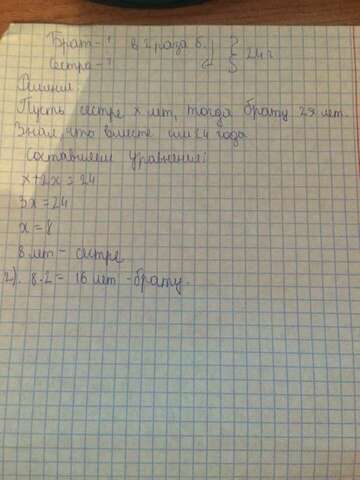 Брат - ? в 2 раза б. } 24 г
Сестра - ?
Решение.
Пусть сестре х лет, тогда брату 2х лет.
Зная, что вместе им 24 года
Составляем уравнение:
х+2х=24
3х=24
х=8
8 лет - сестре
2). 8·2= 16 лет - брату.